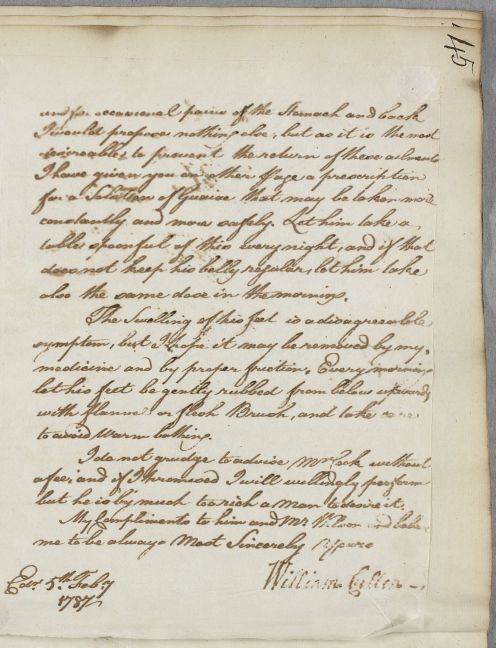 '45
and for occasional pains of the Stomach and back
I would propose nothing else, but as it is the most
to prevent the return of these ailments
I have given you on other page a prescription
for a Solution of Guaiac that may be taken more
constantly and more safely. Let him take a
table spoonful of this every night, and if that
does not keep his belly regular, let him take
also the same dose in the morning.
The Swelling of his feet is a disagreeable
symptom, but I hope it may be removed by my
medicine and by proper friction, Every morning
let his feet be gently rubbed from below upwards
with flannel or flesh Brush, and take care
to avoid warm bathing.
I do not grudge to advise Mr without
a fee; and if I promised I will willingly perform
but he is by much too rich a man to desire it.
My Compliments to him and Mr Wilson and believe
me to be always Most Sincerely Yours
William Cullen
Edr. 5th. Feby
1787